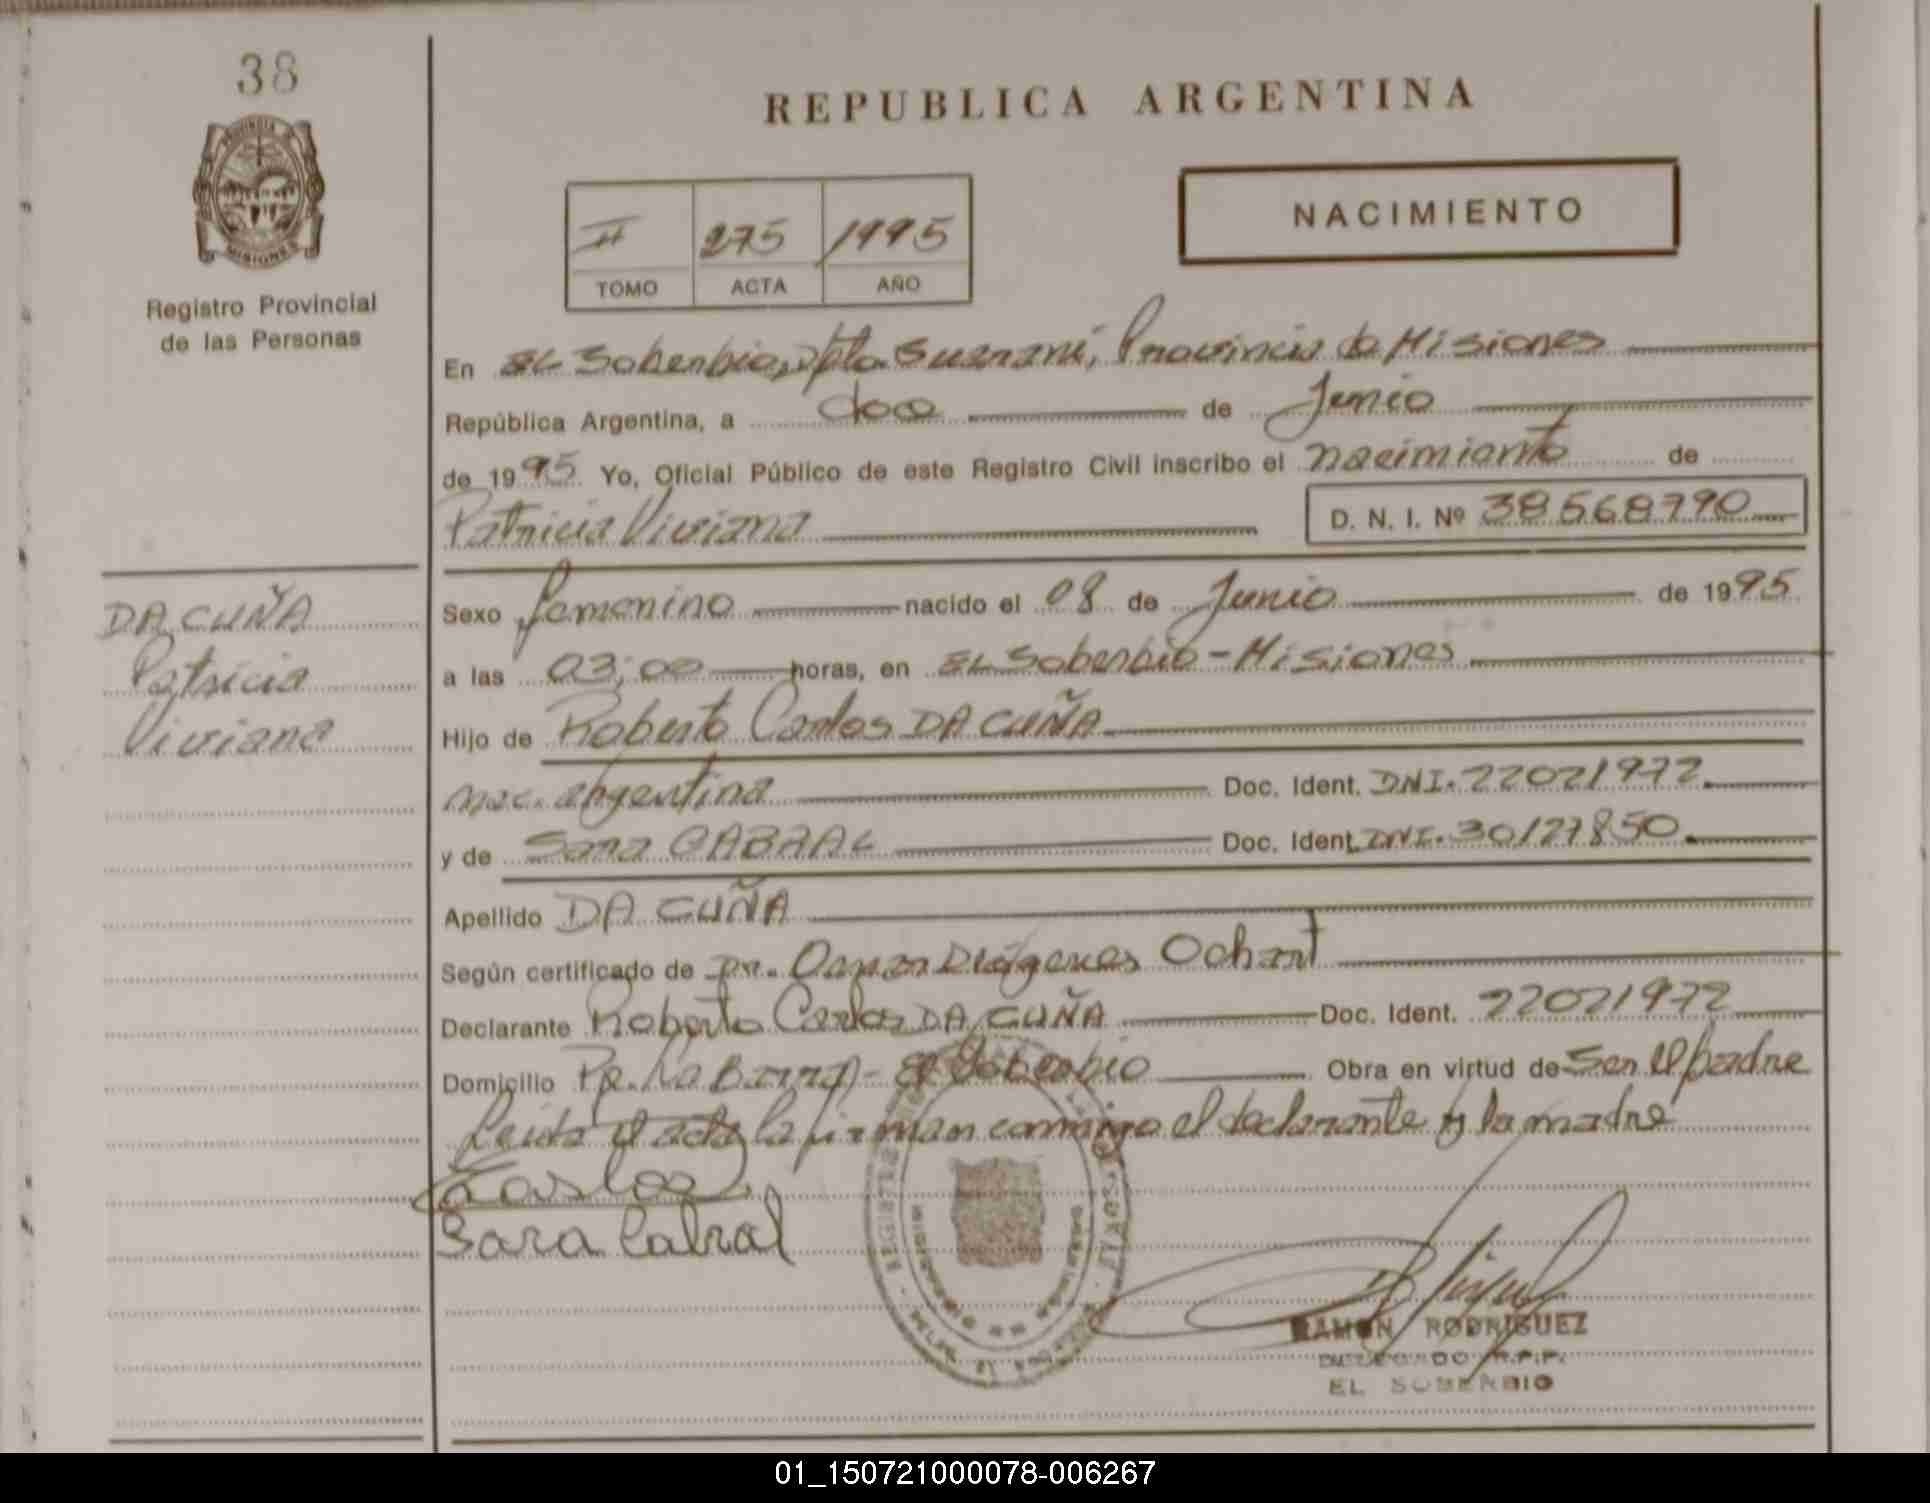 38
REPUBLICA ARGENTINA
PROVINCIA D
MISIONES
Registro Provincial
de las Personas
II 275 1995
TOMO ACTA AÑO
NACIMIENTO
En EL Soberbio, Dpto Guarani, Provincia de Misiones
República Argentina, a doce de Junio
de 1995 Yo, Oficial Público de este Registro Civil inscribo el nacimiento de
Patricia Viviana D. N. I. Nº 38568790
DA CUÑA
Patricia
Viviana
Sexo femenino nacido el 08 de Junio de 1995
a las 03:00 horas, en EL Soberbio - Misiones
Hijo de Roberto Carlos DA CUÑA
nac. argentina Doc. Ident. DNI. 22021972
y de Sara CABRAL Doc. Ident. DNI. 30127850
Apellido DA CUÑA
Según certificado de Dr. Diógenes Ochant
Declarante Roberto Carlos DA CUÑA Doc. Ident. 22021972
Domicilio Pje. La Barra - El Soberbio Obra en virtud de Ser el padre
Leida el acta la firman conmigo el declarante y la madre
Carlos
Sara Cabral
RAMON RODRIGUEZ
DELEGADO R.P.P.
EL SOBERBIO
01_150721000078-006267